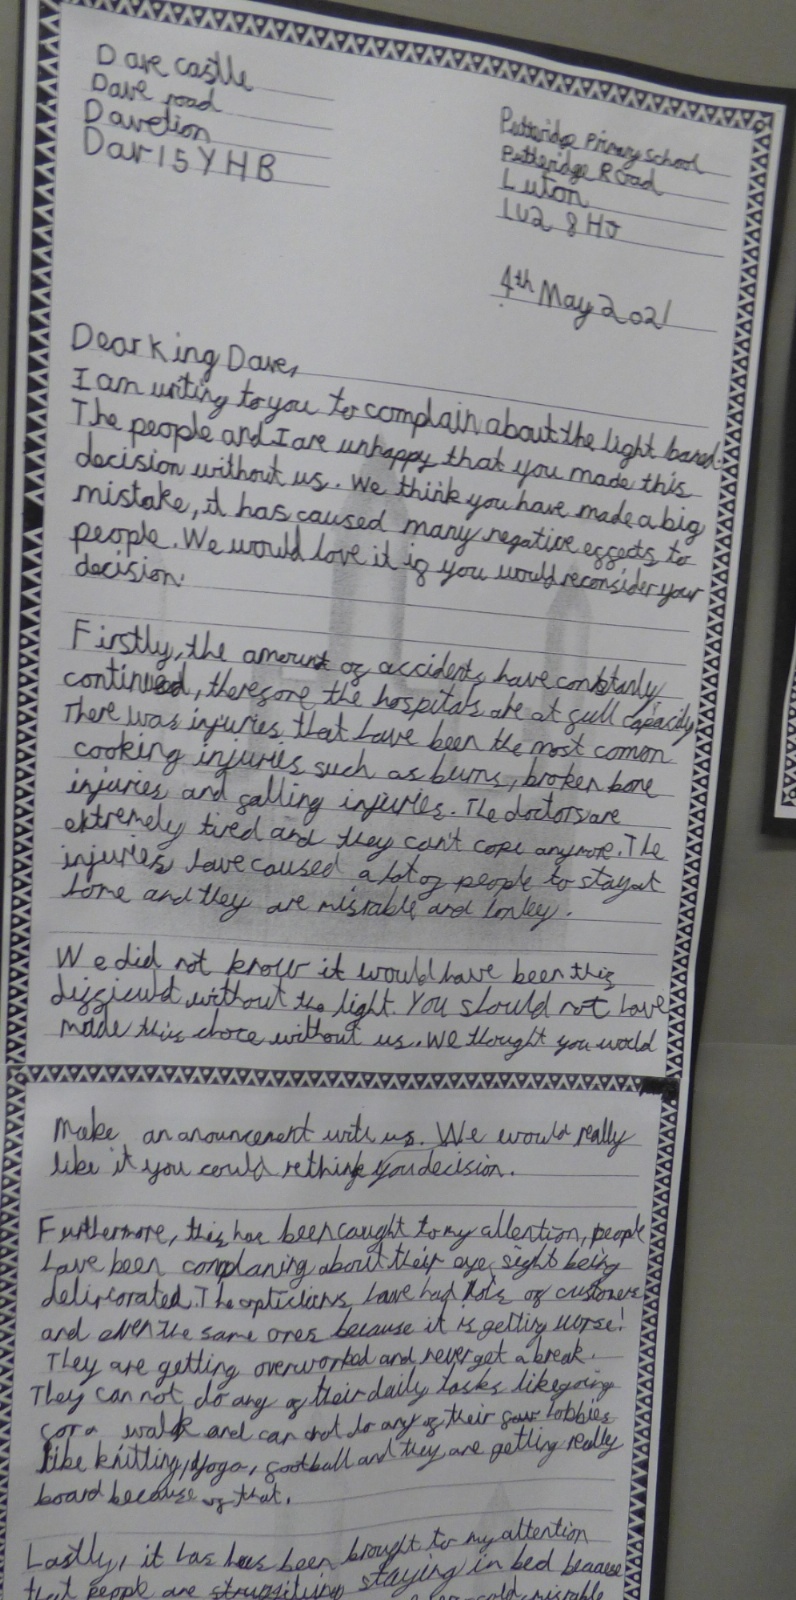 Dave castle
Dave road
Davetion
Dav15YHB
Putteridge Primary School
Putteridge Road
Luton
LU2 8HJ
4th May 2021
Dear King Dave,
I am writing to you to complain about the light band.
The people and I are unhappy that you made this
decision without us. We think you have made a big
mistake, it has caused many negative effects to
people. We would love it if you would reconsider your
decision.
Firstly, the amount of accidents have constantly
continued, therefore the hospitals are at full capacity.
There was injuries that have been the most comon
cooking injuries such as burns, broken bone
injuries and falling injuries. The doctors are
extremely tired and they can't cope anymore. The
injuries have caused a lot of people to stay at
home and they are misrable and lonley.
We did not know it would have been this
without the light. You should not have
made this choce without us. We thought you would
Make an anouncement with us. We would really
like it you could rethink you decision.
Furthermore, this has been caught to my attention, people
have been complaning about their eye sight being
The opticians have had lots of customers
and even the same ones because it is getting worse!
They are getting overworked and never get a break.
They can not do any of their daily tasks like going
for a walk and can not do any of their hobbies
like knitting, yoga, football and they are getting really
board because of that.
Lastly, it has been brought to my attention
that people are staying in bed because
cold, misrable